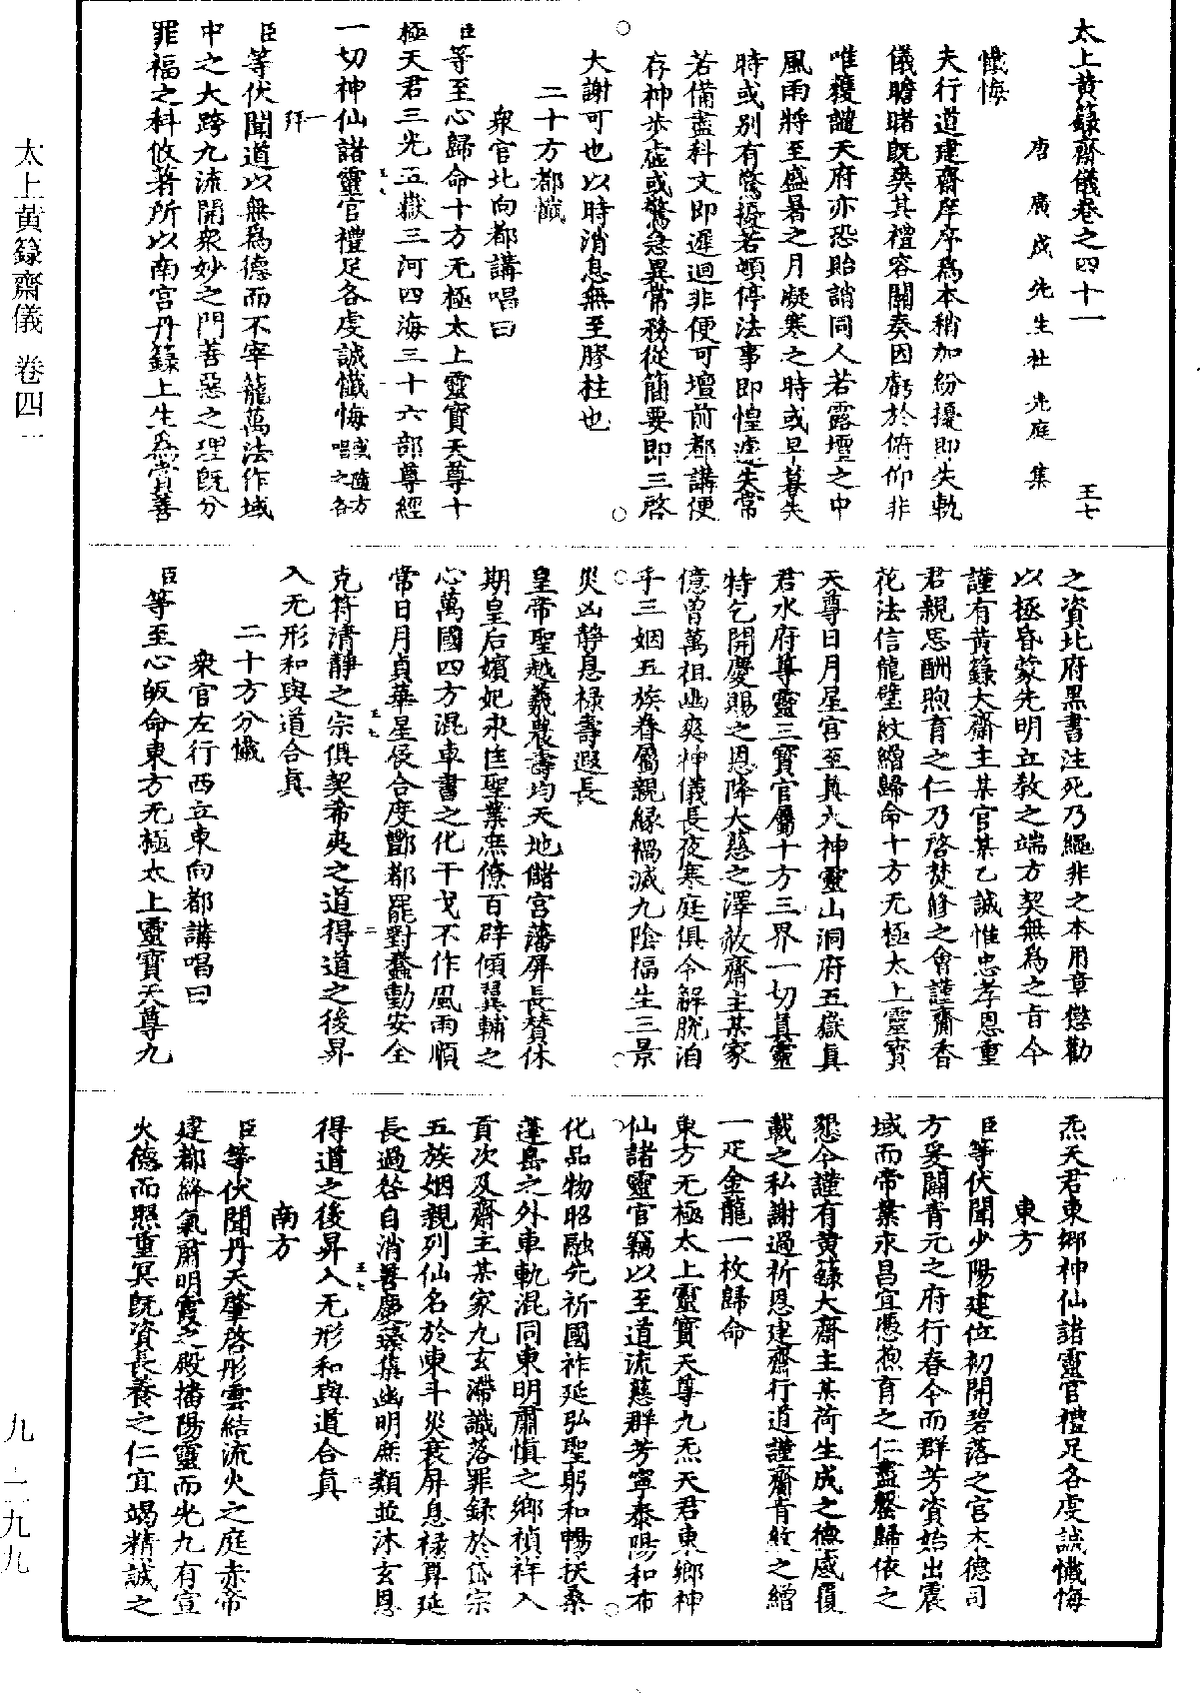 太上黄籙齋儀卷之四十一 王七
唐廣成先生杜光庭集
懺悔
夫行道建齋庠序為本稍加紛擾即失軌
儀瞻睹既爽其禮容關奏因虧於俯仰非
唯䙝瀆天府亦恐貽誚同人若露壇之中
風雨將至盛暑之月凝寒之時或早暮失
時或别有驚擾若頓停法事即惶遽失常
若備盡科文即遲迴非便可壇前都講便
存神步虛或驚急異常務從簡要即三啓
大謝可也以時消息無至膠柱也
二十方都懺
衆官北向都講唱曰
臣等至心歸命十方无極太上靈寶天尊十
極天君三光五嶽三河四海三十六部尊經
一切神仙諸靈官禮足各虔誠懺悔或隨方唱之各
一拜
臣等伏聞道以無為德而不宰籠萬法作域
中之大跨九流開衆妙之門善惡之理既分
罪福之科攸著所以南宫丹籙上生為賞善
之資北府黑書注死乃繩非之本用章懲勸
以極昏蒙先明立教之端方契無為之旨今
謹有黄籙大齋主某官某乙誠惟忠孝恩重
君親思酬煦育之仁乃啓焚修之會謹齎香
花法信龍璧紋繒歸命十方无極太上靈寶
天尊日月星官至真大神靈山洞府五嶽真
君水府尊靈三寶官屬十方三界一切真靈
特乞開慶賜之恩降大慈之澤赦齋主某家
億曾萬祖幽爽神儀長夜寒庭俱令解脱洎
于三姻五族眷屬親緣禍滅九陰福生三景
災凶静息禄壽遐長
皇帝聖越羲農壽均天地儲宫藩屏長贊休
期皇后嬪妃永匡聖業庶僚百辟傾翼輔之
心萬國四方混車書之化干戈不作風雨順
常日月貞華星辰合度酆都罷對蠢動安全
克符清静之宗俱契希夷之道得道之後昇
入无形和與道合真
二十方分懺
衆官左行西立東向都講唱曰
臣等至心皈命東方无極太上靈寶天尊九
炁天君東鄉神仙諸靈官禮足各虔誠懺悔
東方
臣等伏聞少陽建位初開碧落之官木德司
方爰闢青元之府行春令而群芳資始出震
域而帝業永昌宜憑煦育之仁盡罄歸依之
懇今謹有黄籙大齋主某荷生成之德感覆
載之私謝過祈恩建齋行道謹齎青紋之繒
一疋金龍一枚歸命
東方无極太上靈寶天尊九炁天君東鄉神
仙諸靈官竊以至道流慈群芳寧泰陽和布
化品物昭融先祈國祚延弘聖躬和暢扶桑
蓬島之外車軌混同東明肅慎之鄉禎祥入
貢次及齋主某家九玄滯識落罪録於岱宗
五族姻親列仙名於東斗災衰屏息禄算延
長過咎自消善慶臻集幽明庶類並沐玄恩
得道之後昇入无形和與道合真
南方
臣等伏聞丹天肇啓彤雲結流火之庭赤帝
建都絳氣肅明霞之殿播陽靈而光九有宣
火德而照重冥既資長養之仁宜竭精誠之
太上黄籙齋儀 卷四一
九—一九九